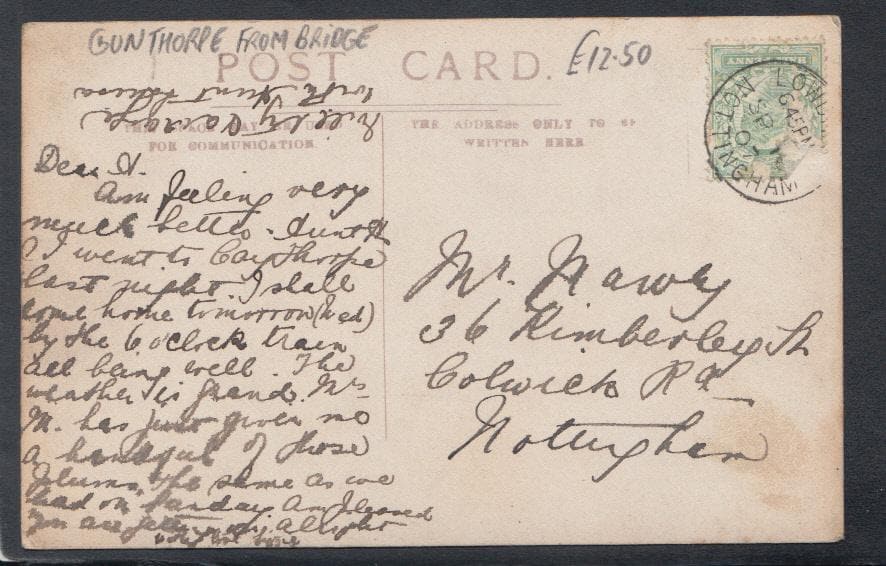 GUNTHORPE FROM BRIDGE
£12.50
POST CARD.
with Aunt
THE ADDRESS ONLY TO BE
FOR COMMUNICATION.
WRITTEN HERE
HALFPENNY
LOWDHAM
NOTTINGHAM
6.45PM
SP
07
Dear H.
Am feeling very
much better. Aunt H
& I went to Caythorpe
last night I shall
come home tomorrow (Wed)
by the 6 o'clock train
all being well. The
weather is grand. Mrs
M. has just given me
a handful of those
plums, the same as we
had on Sunday Am pleased
you are getting on alright
Mr. Hawly
36 Kimberley St
Colwick Rd
Nottingham